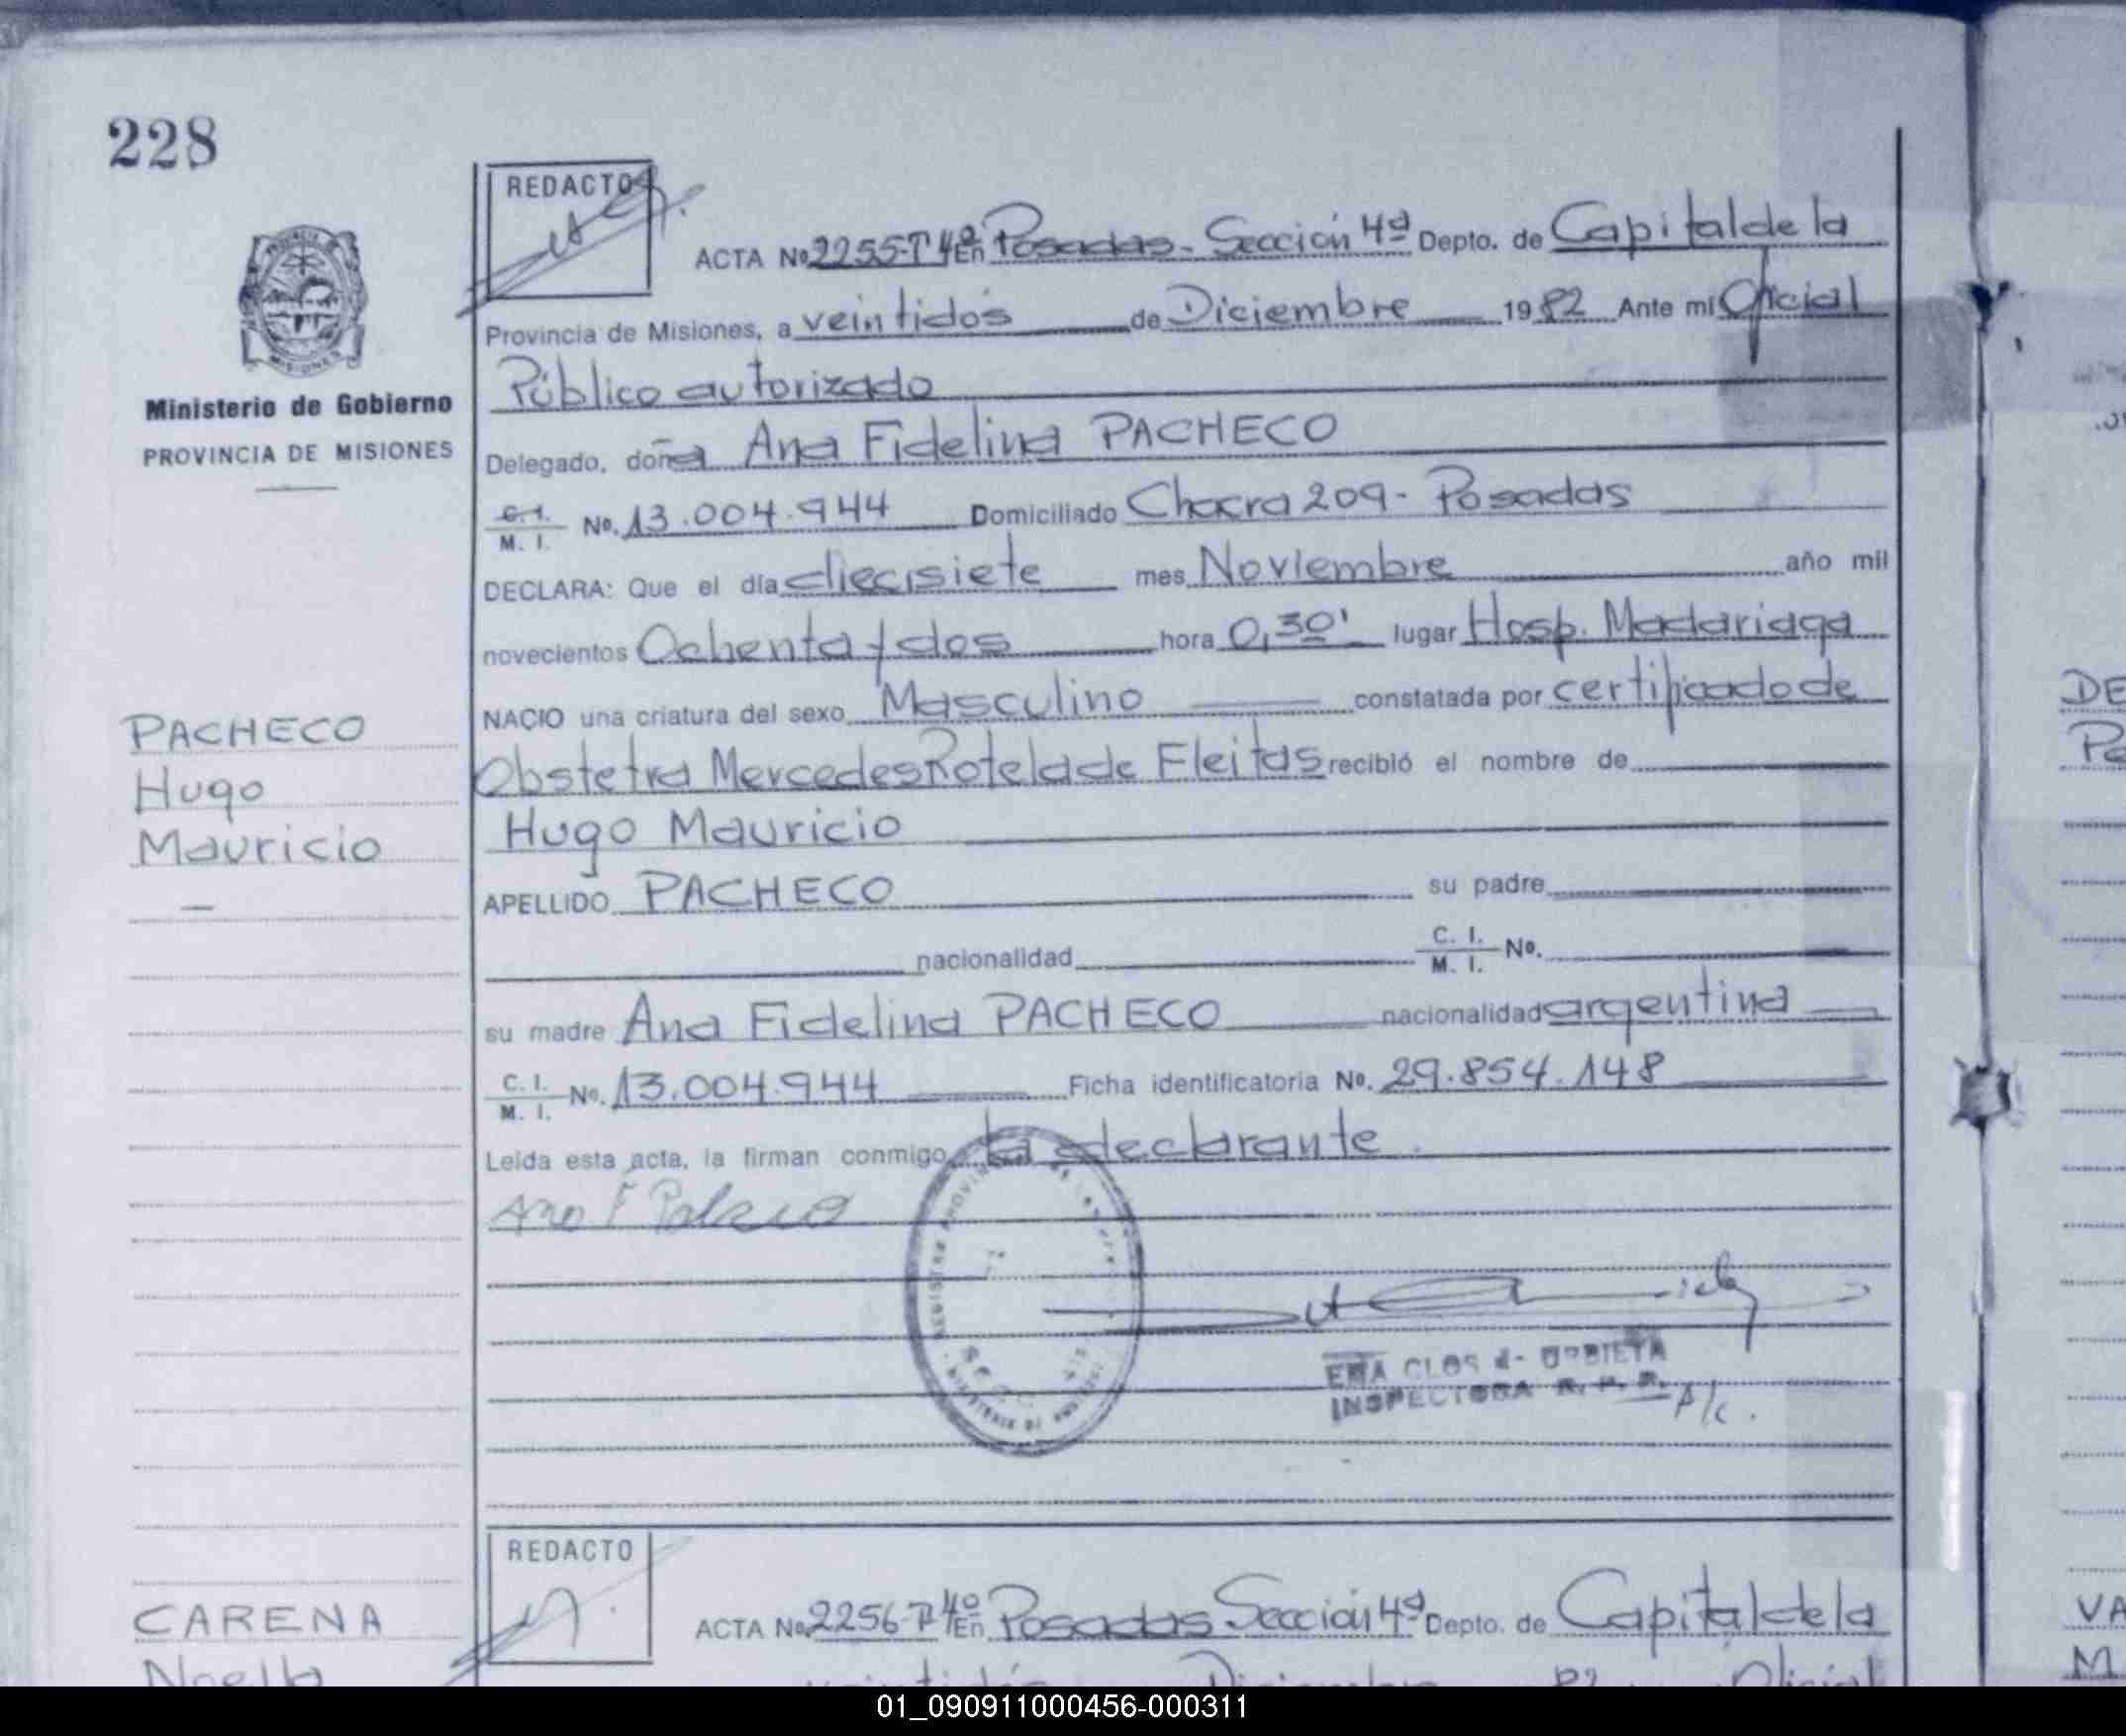 228
REDACTO
ACTA Nº 2255-Tº 4º En Posadas - Sección 4ª Depto. de Capital de la
Provincia de Misiones, a veintidós de Diciembre 1982 Ante mi Oficial
Público autorizado
Ministerio de Gobierno
PROVINCIA DE MISIONES
Delegado, doña Ana Fidelina PACHECO
C. I. M. I. No. 13.004.944 Domiciliado Chacra 209 - Posadas
DECLARA: Que el día diecisiete mes Noviembre año mil
novecientos Ochenta y dos hora 0,30' lugar Hosp. Madariaga
NACIO una criatura del sexo Masculino constatada por certificado de
Obstetra Mercedes Rotela de Fleitas recibió el nombre de
Hugo Mauricio
PACHECO
Hugo
Mauricio
APELLIDO PACHECO su padre
nacionalidad C. I. M. I. Nº.
su madre Ana Fidelina PACHECO nacionalidad argentina
C. I. M. I. No. 13.004.944 Ficha identificatoria No. 29.854.148
Leída esta acta, la firman conmigo la declarante.
Ana F
INSPECTORA
A/c.
REDACTO
ACTA No. 2256-Tº 4º En Posadas Sección 4ª Depto. de Capital de la
veintidós Diciembre 82 Oficial
CARENA
DE
VA
M
01_090911000456-000311